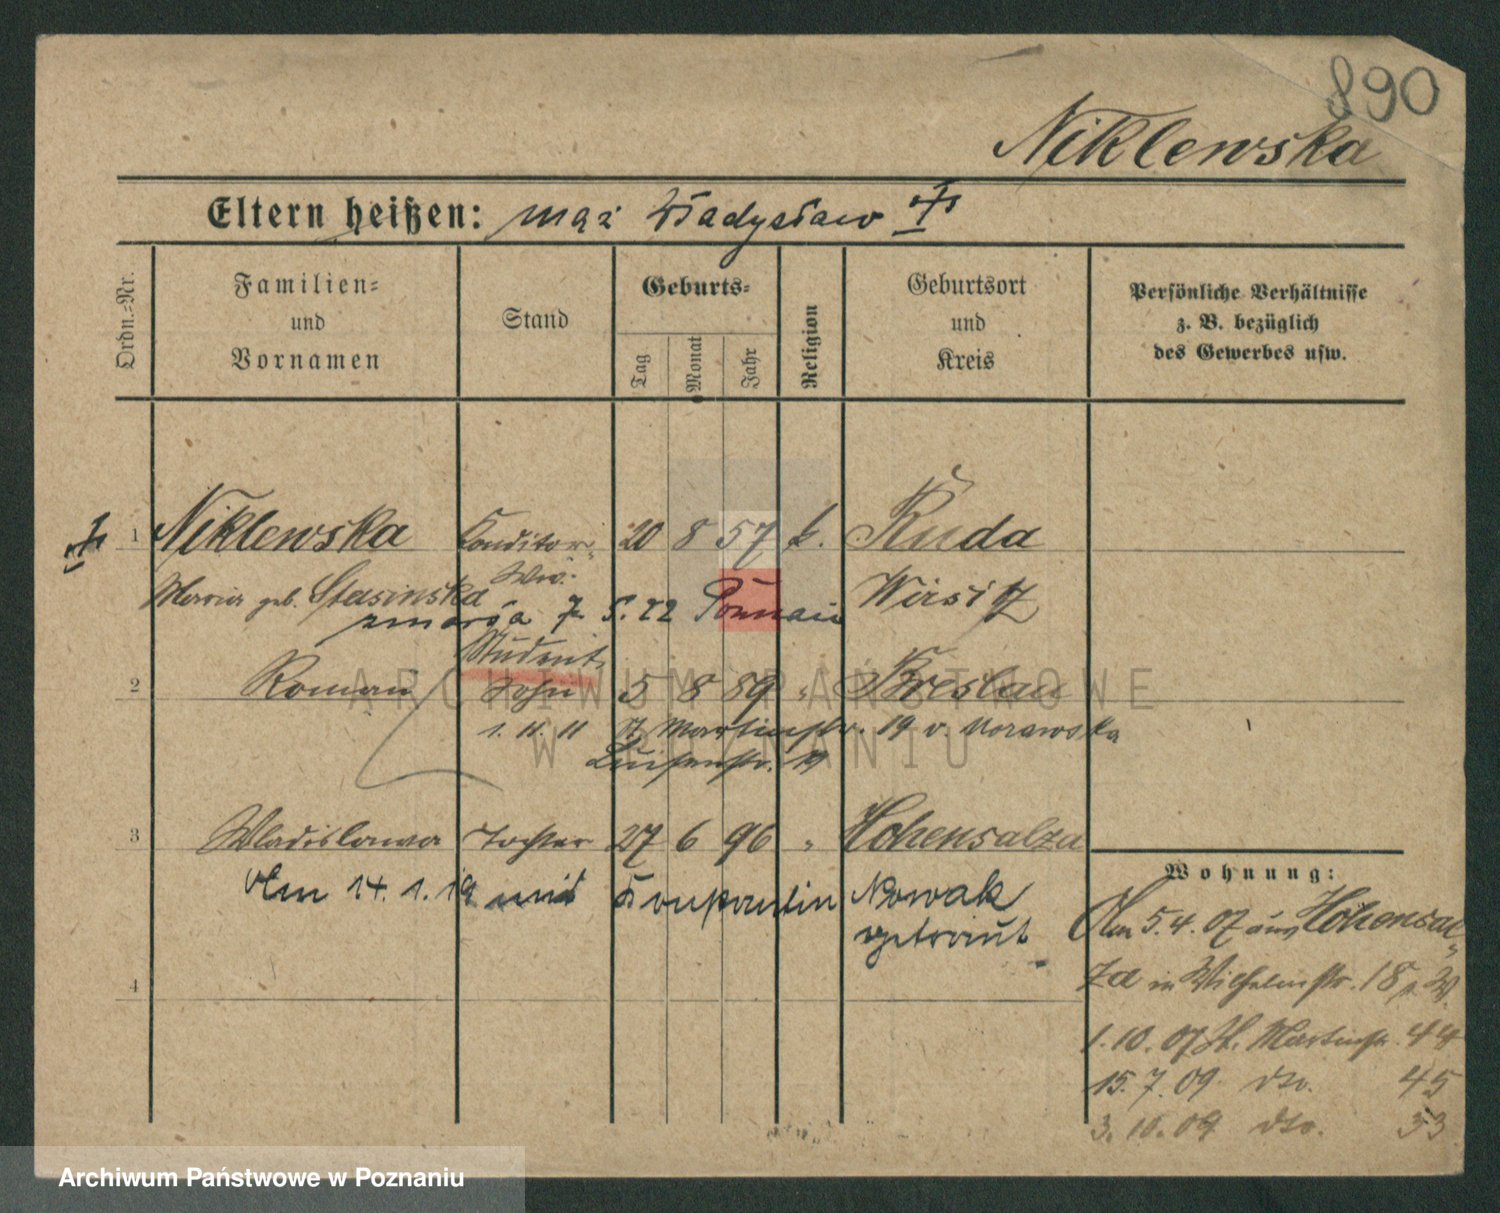 890
Niklewska
Eltern heißen: mąż Władysław
Ordn.-Nr.
Familien-
und
Vornamen
Stand
Geburts-
Tag
Monat
Jahr
Religion
Geburtsort
und
Kreis
Persönliche Verhältnisse
z. B. bezüglich
des Gewerbes usw.
1 Niklewska Konditor- 20 8 57 k. Ruda
Ww.
Maria geb. Stasinska Wirsitz
zmarła 7. 5. 22 Poznań
Student
2 Roman Sohn 5 8 89 " Breslau
1. 11. 11 St Martinstr. 19 v. Morawska
Luisenstr. 19
3 Wladislawa Tochter 27 6 96 " Hohensalza
Am 14. 1. 19 mit Konstantin Nowak
getraut
4
Wohnung:
Am 5. 4. 07 aus Hohensal-
za in Wilhelmstr. 18
1. 10. 07 St. Martinstr. 44
15. 7. 09 dto. 45
3. 10. 09 dto. 33
ARCHIWUM PAŃSTWOWE
W POZNANIU
Archiwum Państwowe w Poznaniu